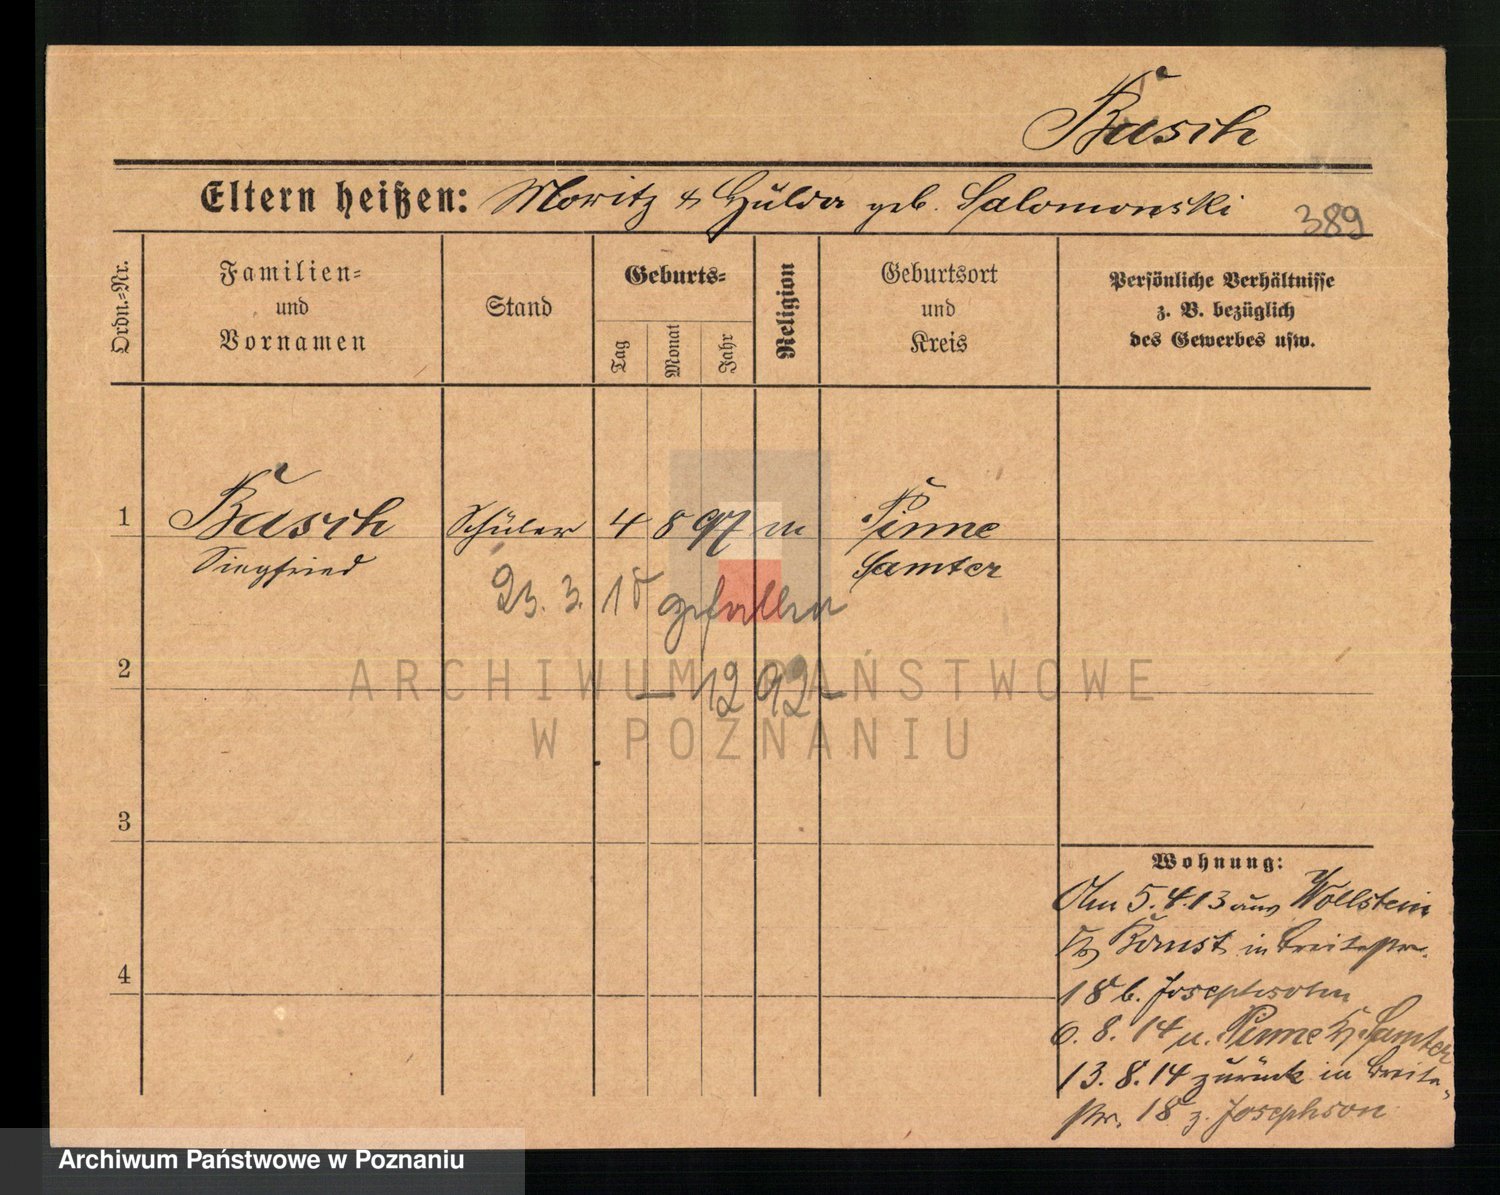 Basch
Eltern heißen: Moritz & Hulda geb. Salomonski
389
Ordn.=Nr.
Familien=
und
Vornamen
Stand
Geburts=
Tag
Monat
Jahr
Religion
Geburtsort
und
Kreis
Persönliche Verhältnisse
z. B. bezüglich
des Gewerbes usw.
1 Basch Schüler 4 8 97 m Pinne
Siegfried Samter
23. 3. 18 gefallen
2
– 1292 –
3
4
Wohnung:
Am 5.4.13 aus Wollstein
Kr. Bomst in Breitestr.
18 b. Josephsohn
6. 8. 14 n. Pinne Kr. Samter
13. 8. 14 zurück in Breite-
str. 18 z. Josephson
ARCHIWUM PAŃSTWOWE
W POZNANIU
Archiwum Państwowe w Poznaniu